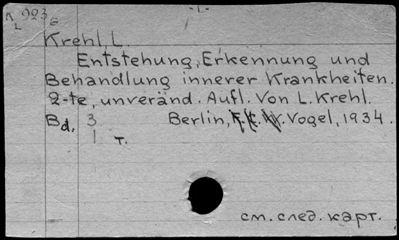 -1-
Krehl, L.
Entstehung, Erkennung und
Behandlung innerer Krankheiten.
2-te, unveränd. Aufl. Von L. Krehl.
Bd. 3 Berlin, F. C. W. Vogel, 1934.
1 т.
см. след. карт.